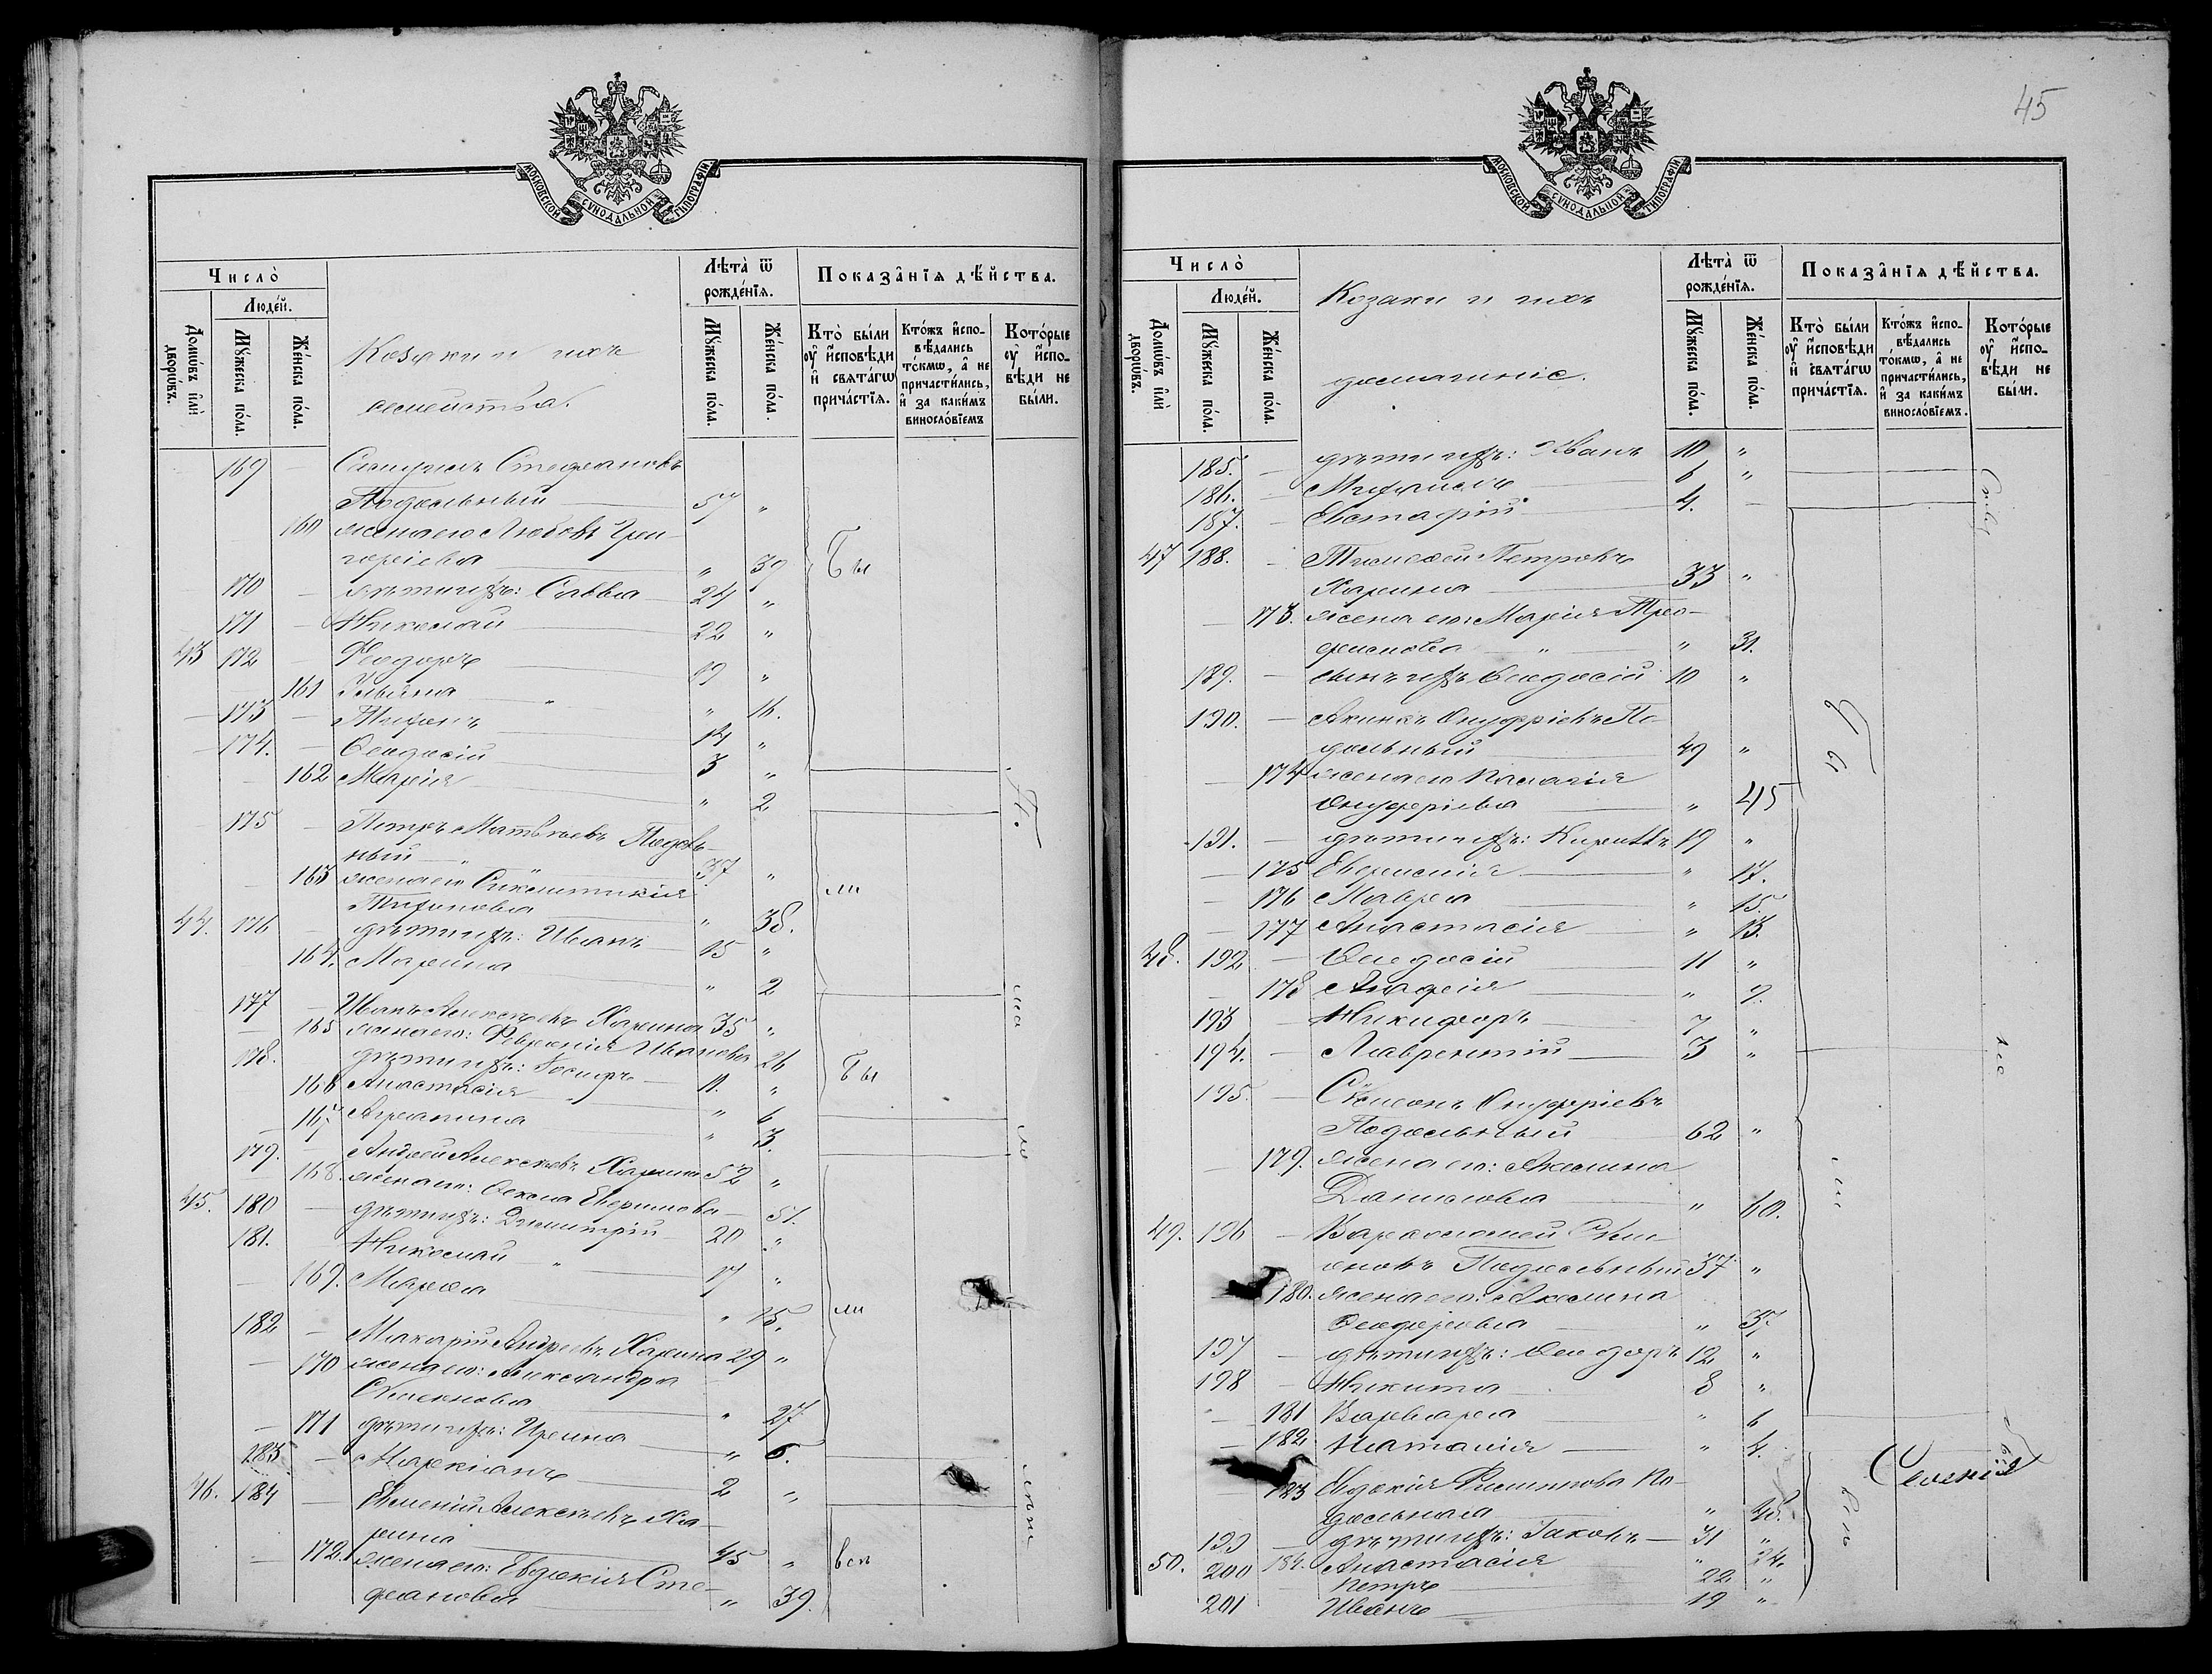 МОСКОВСКОЙ СѴНОДАЛЬНОЙ ТИПОГРАФІИ
Число̀
Людéй.
Домѡ́въ и҆лѝ дворѡ́въ.
Мꙋ́жеска по́ла.
Же́нска по́ла.
Козаки и ихъ
семейства.
Лѣта̀ ѿ рожде́нїѧ.
Мꙋ́жеска по́ла.
Же́нска по́ла.
Показа̑нїѧ дѣ́йства.
Кто̀ бы́ли ᲂу҆ и҆сповѣди и҆ свѧта́гѡ прича́стїѧ.
Кто́жъ и҆спо-вѣдались то́кмѡ, а҆ не причасти́лись, и҆ за каки́мъ винослóвїемъ
Кото́рые ᲂу҆ и҆спо-вѣди не бы́ли.
169 Самуилъ Стефановъ
Подольный 57 "
160 жена его Любовь Гри-
горіева " 39 Бы
170 дѣти ихъ: Савва 24 "
171 Николай 22 "
43 172 Феодоръ 19 "
161 Ульяна " 16.
173 Тихонъ 14 "
174. Феодосій 3 "
162 Марія " 2
175 Петръ Матвѣевъ Подоль-
ный 37 "
163 жена его Синклитикія ли
Тихонова " 38.
44. 176 дѣти ихъ: Иванъ 15 "
164. Марина " 2
177 Иванъ Алексѣевъ Харина 35 "
165 жена его: Февронія Иванова 26
178. дѣти ихъ: Іосифъ 11. " Бы
166 Анастасія " 6
167 Агрипина " 3.
179. Андрей Алексѣевъ Харина 52 "
168. жена его: Фекла Ефримова 51.
45. 180 дѣти ихъ: Димитрій 20 "
181. Николай 17 "
169. Марфа " 15. ли
182 Макарій Андреевъ Харина 29 "
170 жена его: Александра
Симеонова " 27
171 дѣти ихъ: Ирина " 6.
183 Маркіанъ 2 "
46. 184 Евменій Алексѣевъ Ха-
рина 45 " всѣ
172. жена его: Евдокія Сте-
фанова " 39.
45
МОСКОВСКОЙ СѴНОДАЛЬНОЙ ТИПОГРАФІИ
Число̀
Людéй.
Домѡ́въ и҆лѝ дворѡ́въ.
Мꙋ́жеска по́ла.
Же́нска по́ла.
Козаки и ихъ
домашніе.
Лѣта̀ ѿ рожде́нїѧ.
Мꙋ́жеска по́ла.
Же́нска по́ла.
Показа̑нїѧ дѣ́йства.
Кто̀ бы́ли ᲂу҆ и҆сповѣди и҆ свѧта́гѡ прича́стїѧ.
Кто́жъ и҆спо-вѣдались то́кмѡ, а҆ не причасти́лись, и҆ за каки́мъ винослóвїемъ.
Кото́рые ᲂу҆ и҆спо-вѣди не бы́ли.
185. дѣти ихъ: Иванъ 10 "
186. Михаилъ 6 "
187. Евстафій 4.
47 188. Тимофей Петровъ
Харина 33 "
173. жена его: Марія Тро-
фимова " 31.
189. сынъ ихъ Феодосій 10 "
190. Акимъ Онуфріевъ По-
дольный 49 " Бы
174 жена его Пелагія
Онуфріева " 45
191. дѣти ихъ: Кириллъ 19 "
175 Евфимія " 17.
176 Мавра " 15.
177 Анастасія " 13.
48. 192 Феодосій 11 "
178 Агафія " 9.
193 Никифоръ 7 "
194. Лаврентій 3 "
195. Симеонъ Онуфріевъ
Подольный 62 "
179. жена его: Акилина
Данилова " 60.
49. 196 Варфоломей Сим-
еоновъ Подольный 37 "
180. жена его: Акилина
Феодорова " 37
197 дѣти ихъ: Феодоръ 12 "
198 Никита 8 "
181 Варвара " 6
182 Наталія " 4.
183 Евдокія Филиппова По-
дольная " 48.
199 дѣти ихъ: Іаковъ 31 "
50. 200 184. Анастасія " 24.
Петръ 22 "
201 Иванъ 19 "